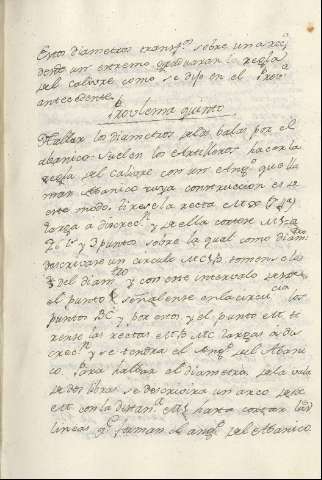 Estos diametros transfos. sobre una re
desde un extremo graduaran la Regla
del Calibre como se dijo en el Prova
antecedente.
Provlema quinto
Hallar los diametros de las balas por el
abanico. Suelen los Artilleros hacer la
Regla del Calibre con un Angº que lla
man Abanico cuya construccion es de
este modo. Tirese la recta M
larga a discrecn. y de ella cortese M
y 3 puntos sobre la qual como diamtro
descrivase un circulo tomense los
del diamtro y con este intervalo desde
el punto señalense en la circuncia los
puntos BC y por estos y el punto M ti
rense las rectas MB MC largas a dis
crecn. y se tendra el Angº del Abani
co. Para hallar el diametro de la vala
de dos libras se descrivira un arco desde
M con la distana. M hasta cortar las
lineas qe. forman el angº del Abanico